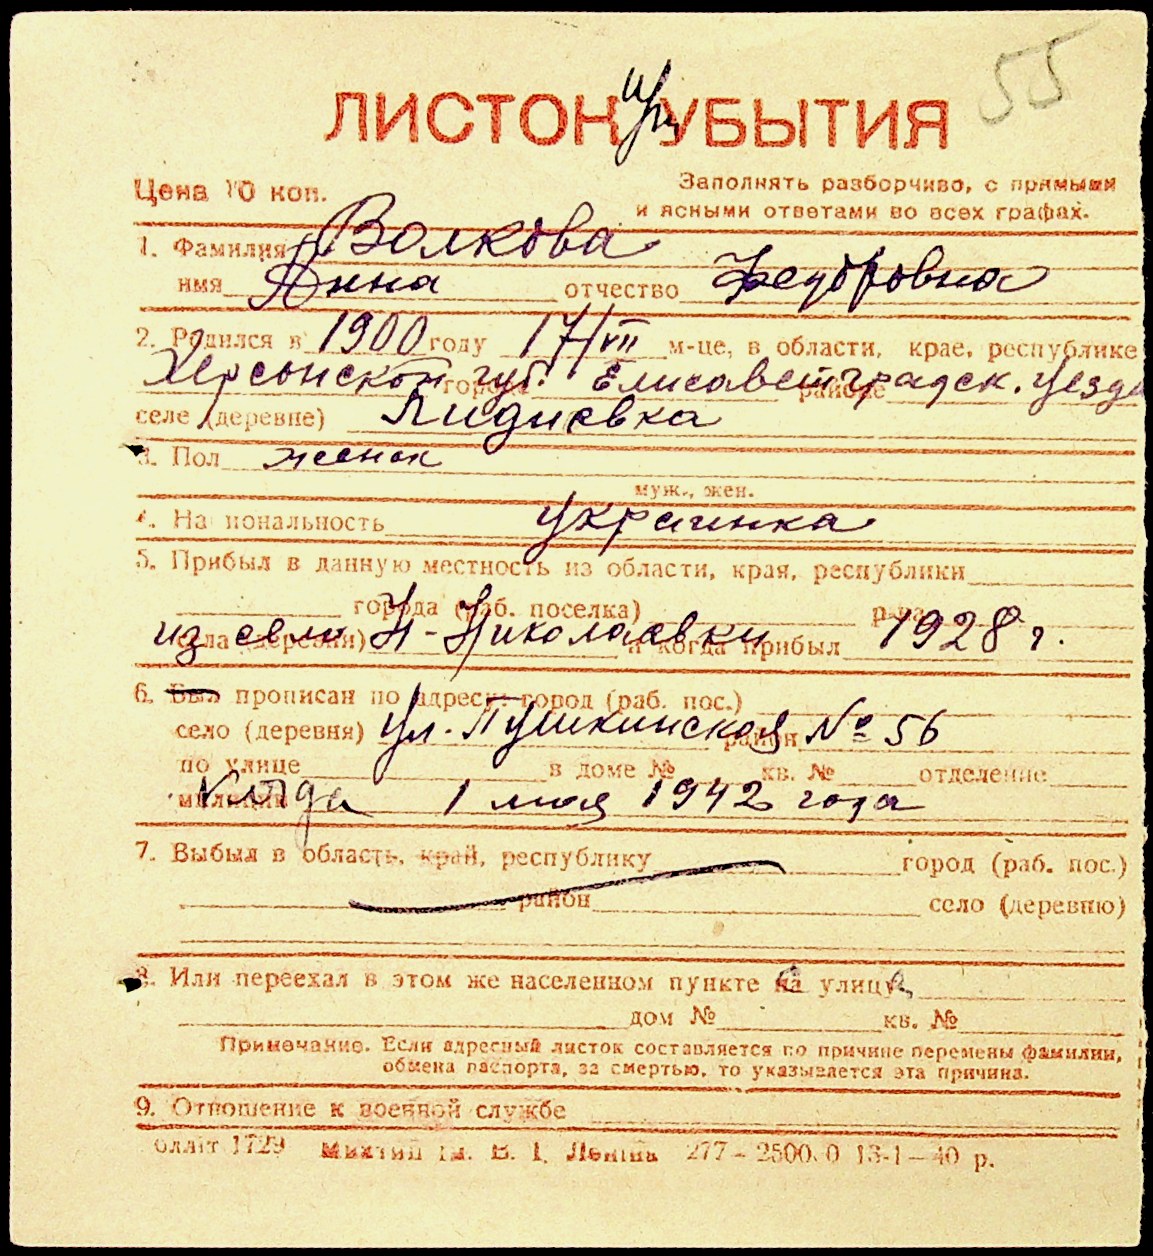 55
ЛИСТОК УБЫТИЯ
Цена 10 коп.
Заполнять разборчиво, с прямыми
и ясными ответами во всех графах.
1. Фамилия Волкова
имя Анна отчество Федоровна
2. Родился в 1900 году 17/VII м-це, в области, крае, республике
Херсонской губ. города Елисаветградск. района уезда
селе (деревне) Лидиевка
3. Пол женск
муж., жен.
4. Национальность украинка
5. Прибыл в данную местность из области, края, республики
города (раб. поселка) р-на
из села Н-Николаевки и когда прибыл 1928 г.
6. Был прописан по адресу: город (раб. пос.)
село (деревня) ул. Пушкинской район № 56
по улице в доме № кв. № отделение
милиции Когда 1 мая 1942 года
7. Выбыл в область, край, республику город (раб. пос.)
район село (деревню)
8. Или переехал в этом же населенном пункте с улицы
дом № кв. №
Примечание. Если адресный листок составляется по причине перемены фамилии,
обмена паспорта, за смертью, то указывается эта причина.
9. Отношение к военной службе
Облліт 1729 Миктип ім. В. І. Леніна 277 – 2500.0 13-1–40 р.